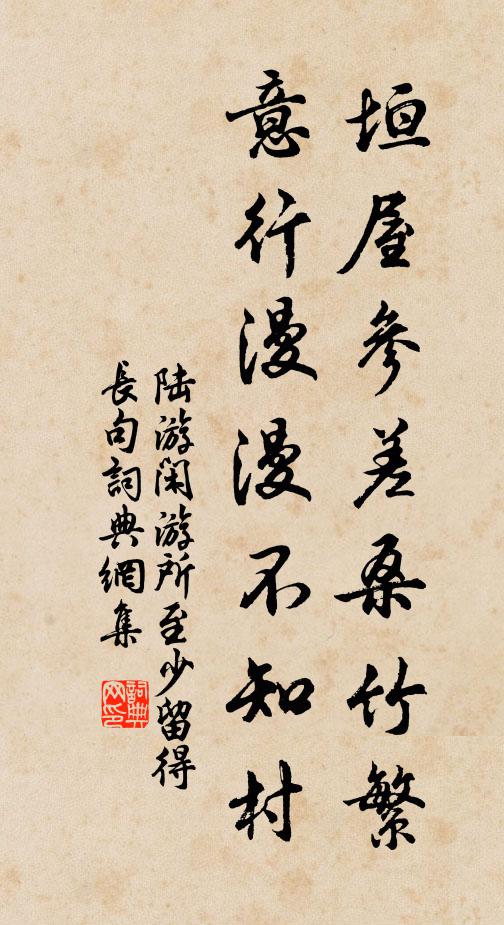 垣屋參差桑竹繁
意行漫漫不知村
陆游閑游所至少留得
長句詞典網集
詞典
网印